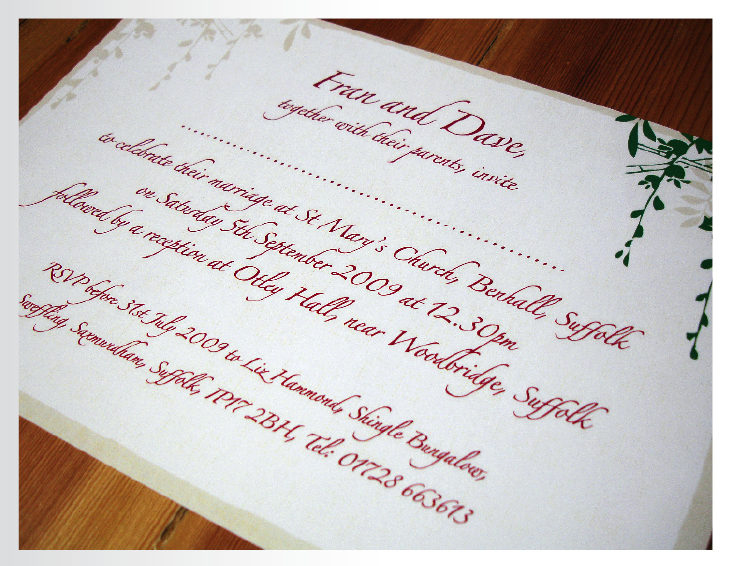 Fran and Dave,
together with their parents, invite
................................................................
to celebrate their marriage at St Mary's Church, Benhall, Suffolk
on Saturday 5th September 2009 at 12.30pm
followed by a reception at Otley Hall, near Woodbridge, Suffolk
RSVP before 31st July 2009 to Liz Hammond, Shingle Bungalow,
Sweffling, Saxmundham, Suffolk, IP17 2BH, Tel: 01728 663613